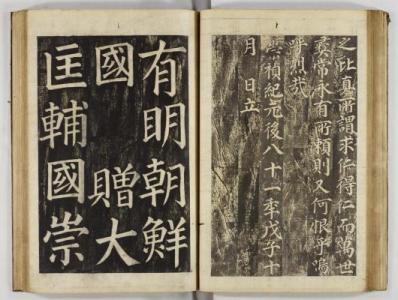 之耻真所謂求仁得仁而萬世
彛常永有所賴則又何恨乎嗚
呼烈哉
崇禎紀元後八十一秊戊子十
月 日立
有明朝鮮
國 贈大
匡輔國崇